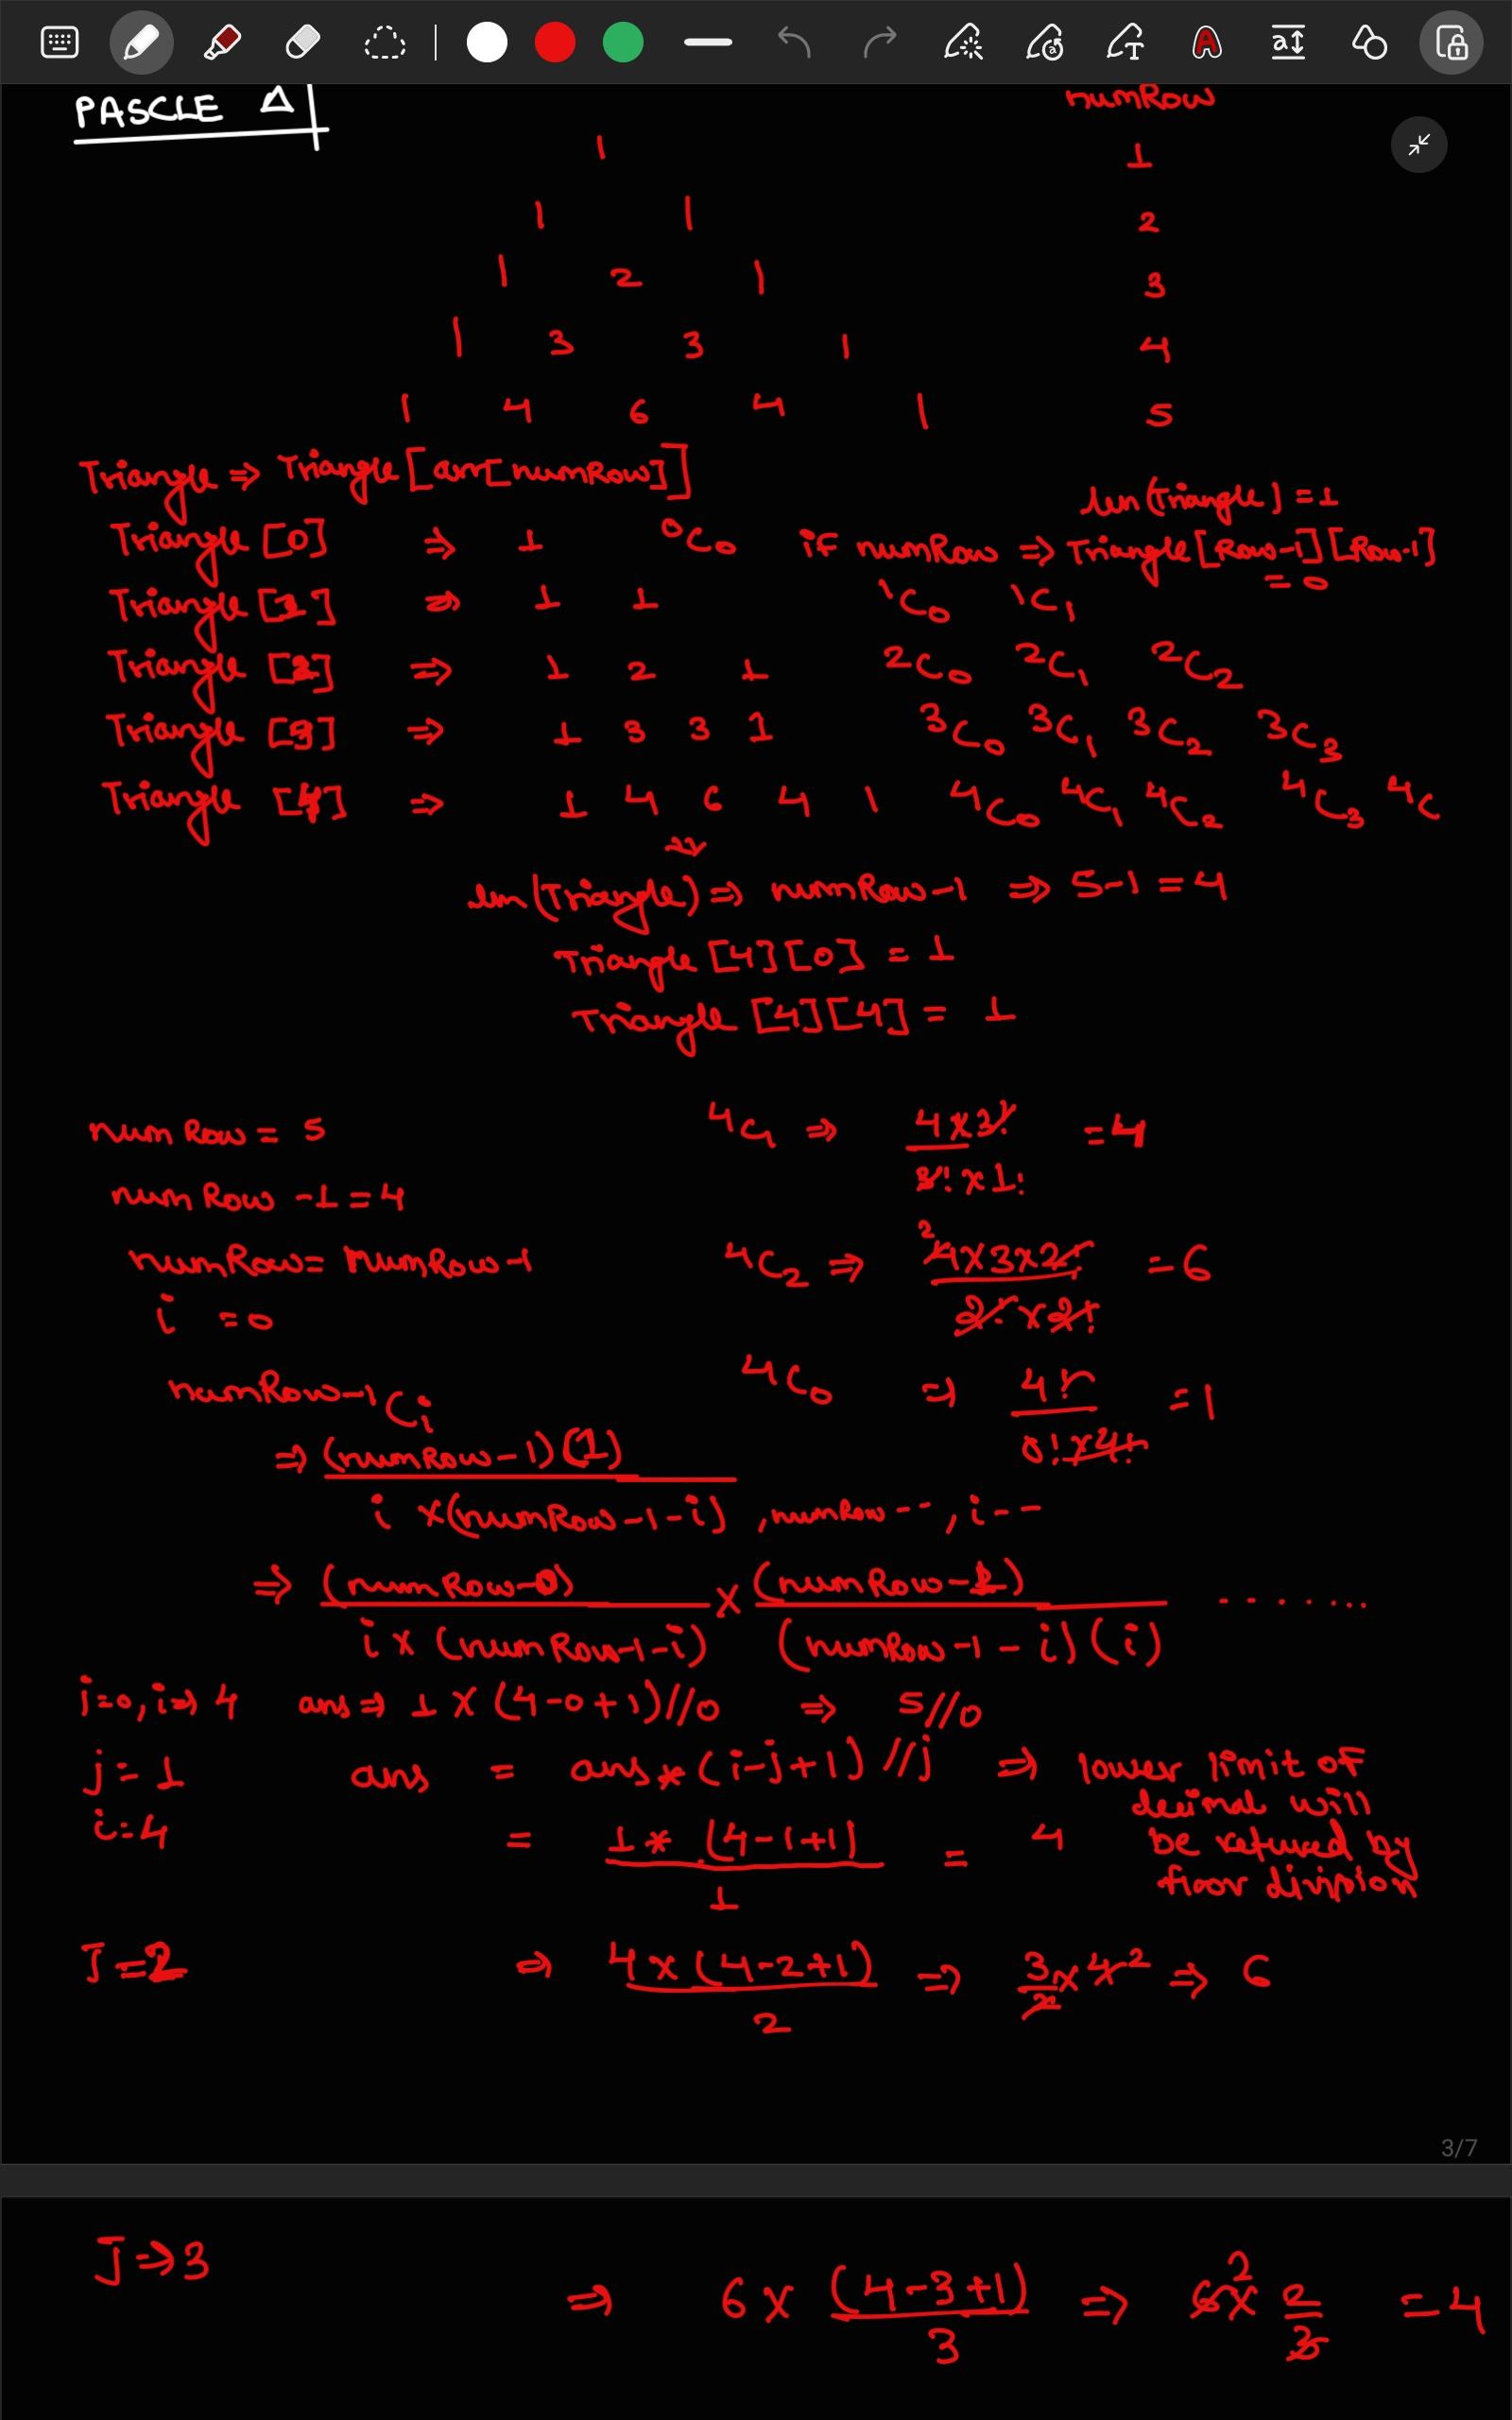 PASCLE Δ
numRow
1 1
1 1 2
1 2 1 3
1 3 3 1 4
1 4 6 4 1 5
Triangle ⇒ Triangle[arr[numRow]]
len(Triangle) = 1
Triangle [0] ⇒ 1 ⁰C₀ if numRow ⇒ Triangle[Row-1][Row-1]
= 0
Triangle [1] ⇒ 1 1 ¹C₀ ¹C₁
Triangle [2] ⇒ 1 2 1 ²C₀ ²C₁ ²C₂
Triangle [3] ⇒ 1 3 3 1 ³C₀ ³C₁ ³C₂ ³C₃
Triangle [4] ⇒ 1 4 6 4 1 ⁴C₀ ⁴C₁ ⁴C₂ ⁴C₃ ⁴C
len(Triangle) ⇒ numRow-1 ⇒ 5-1 = 4
Triangle [4][0] = 1
Triangle [4][4] = 1
numRow = 5 ⁴C₁ ⇒ 4×3! = 4
3! × 1!
numRow -1 = 4
numRow = numRow-1 ⁴C₂ ⇒ 2 4×3×2! = 6
2! × 2!
i = 0
numRow-1 Cᵢ ⁴C₀ ⇒ 4! = 1
0! × 4!
⇒ (numRow-1)(1)
i × (numRow-1-i) , numRow-- , i--
⇒ (numRow-0) × (numRow-1) .......
i × (numRow-1-i) (numRow-1-i)(i)
j=0, i⇒4 ans ⇒ 1 × (4-0+1)//0 ⇒ 5//0
j = 1 ans = ans * (i-j+1)//j ⇒ lower limit of
decimal will
i=4 = 1 * (4-1+1) = 4 be retured by
1 floor division
J = 2 ⇒ 4 × (4-2+1) ⇒ 3 × 4 2 ⇒ 6
2 2
3/7
J ⇒ 3
⇒ 6 × (4-3+1) ⇒ 6 2 × 2 = 4
3 3